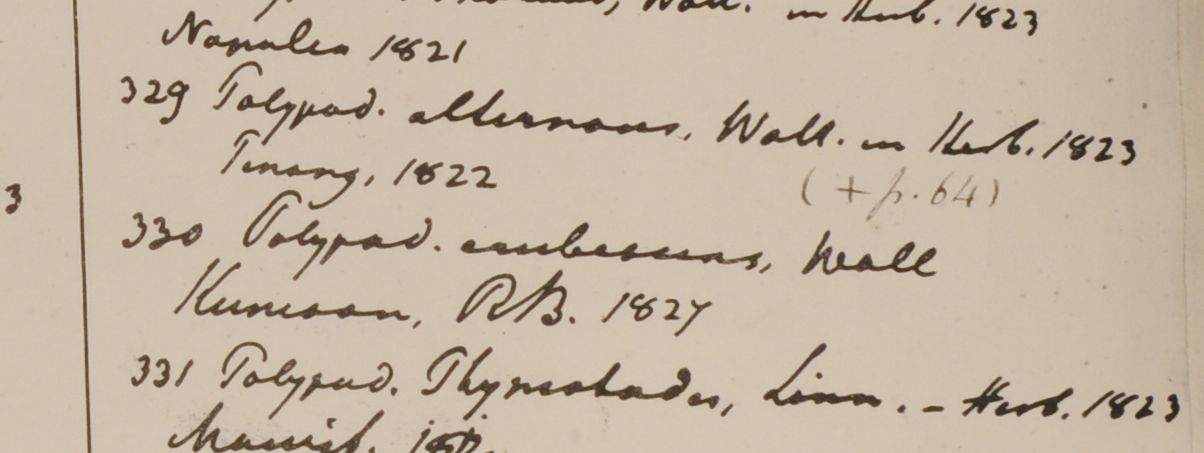 Wall. in Herb. 1823
Napalea 1821
329 Polypod. alternans, Wall. in Herb. 1823
Penang, 1822
(+ p. 64)
3
330 Polypod. erubescens, Wall
Kumaon, R.B. 1827
331 Polypod. Phymatodes, Linn. - Herb. 1823
Maurit.